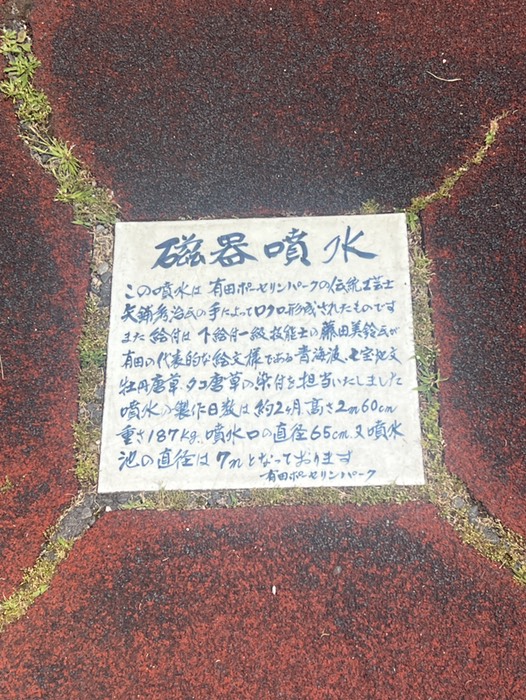 磁器噴水
この噴水は 有田ポーセリンパークの伝統工芸士
矢鋪秀治氏の手によってロクロ形成されたものです
また 絵付は 下絵付一級技能士の藤田美鈴氏が
有田の代表的な絵文様である青海波、七宝地文
牡丹唐草 タコ唐草の染付を担当いたしました
噴水の製作日数は 約2ヶ月 高さ2m60cm
重さ187kg. 噴水口の直径65cm 又噴水
池の直径は 7mとなっております
有田ポーセリンパーク